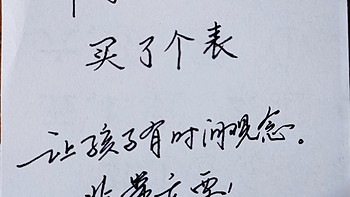 买了个表
让孩子有时间观念。
非常重要！